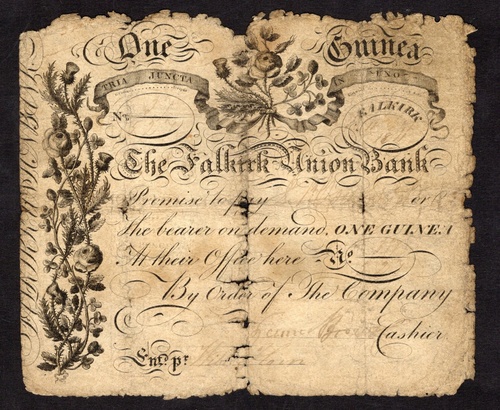 One Guinea
TRIA JUNCTA IN UNO
No.
FALKIRK
The Falkirk Union Bank
Promise to pay or
the bearer on demand, ONE GUINEA
At their Office here No
By Order of The Company
Cashier
Entd. pr.